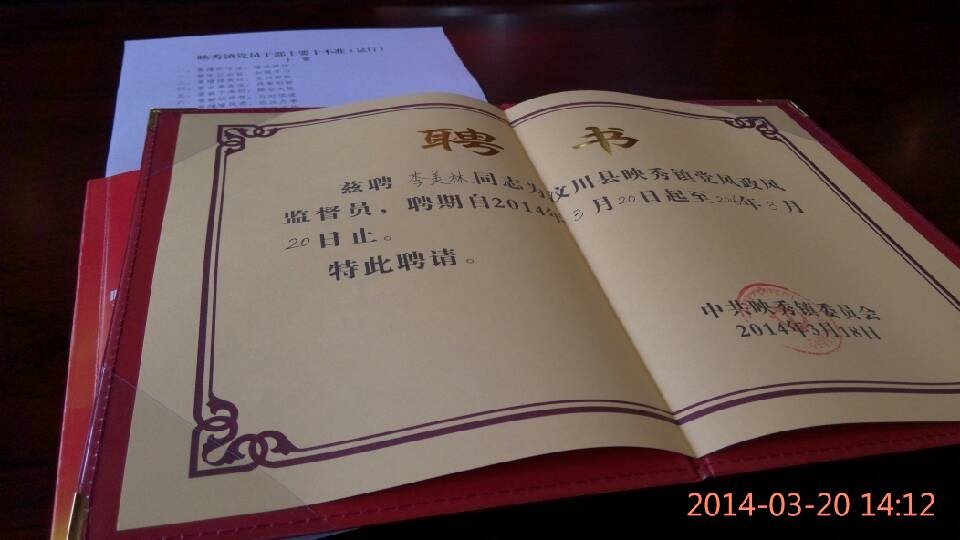 映秀镇党员干部十要十不准（试行）
十要
聘书
兹聘 李美林 同志为汶川县映秀镇党风政风
监督员，聘期自2014年3月20日起至2016年3月
20日止。
特此聘请。
中共映秀镇委员会
2014年3月18日
2014-03-20 14:12